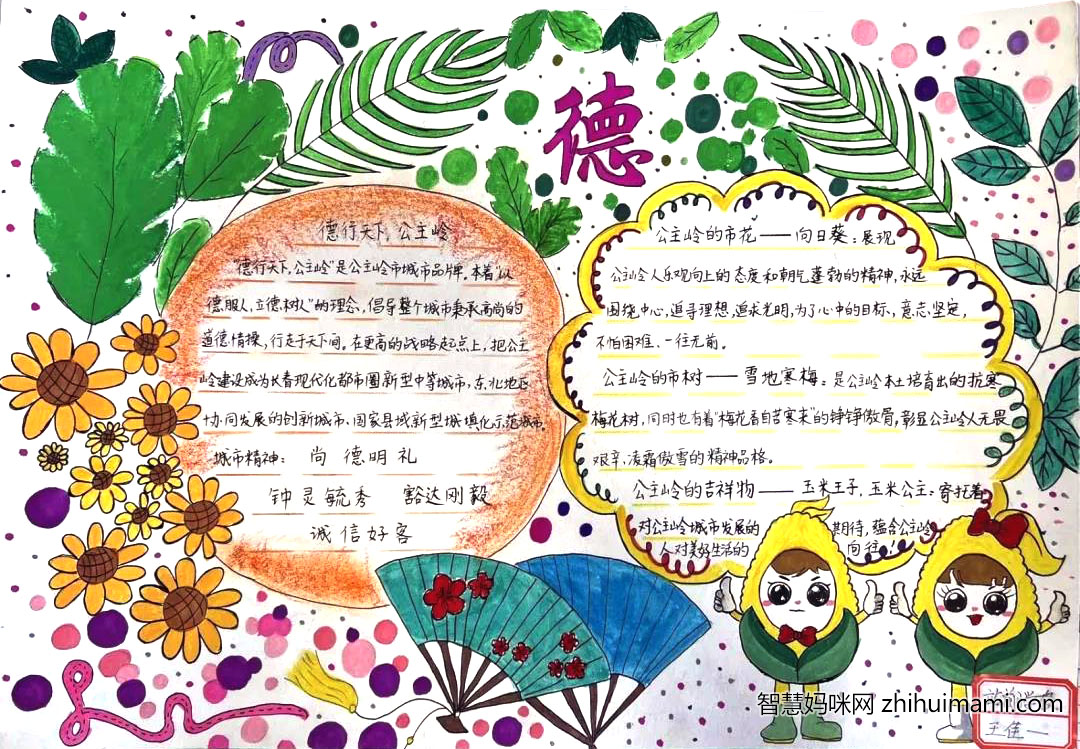 德
德行天下,公主岭
“德行天下,公主岭”是公主岭市城市品牌。本着“以
德服人,立德树人”的理念,倡导整个城市秉承高尚的
道德情操,行走于天下间。在更高的战略起点上,把公主
岭建设成为长春现代化都市圈新型中等城市,东北地区
协同发展的创新城市、国家县域新型城镇化示范城市。
城市精神: 尚德明礼
钟灵毓秀 豁达刚毅
诚信好客
公主岭的市花——向日葵:展现
公主岭人乐观向上的态度和朝气蓬勃的精神,永远
围绕中心,追寻理想,追求光明,为了心中的目标,意志坚定,
不怕困难、一往无前。
公主岭的市树——雪地寒梅:是公主岭本土培育出的抗寒
梅花树,同时也有着“梅花香自苦寒来”的铮铮傲骨,彰显公主岭人无畏
艰辛、凌霜傲雪的精神品格。
公主岭的吉祥物——玉米王子,玉米公主:寄托着
对公主岭城市发展的 期待,蕴含公主岭
人对美好生活的 向往!
智慧妈咪网 zhihuimami.com
王佳一